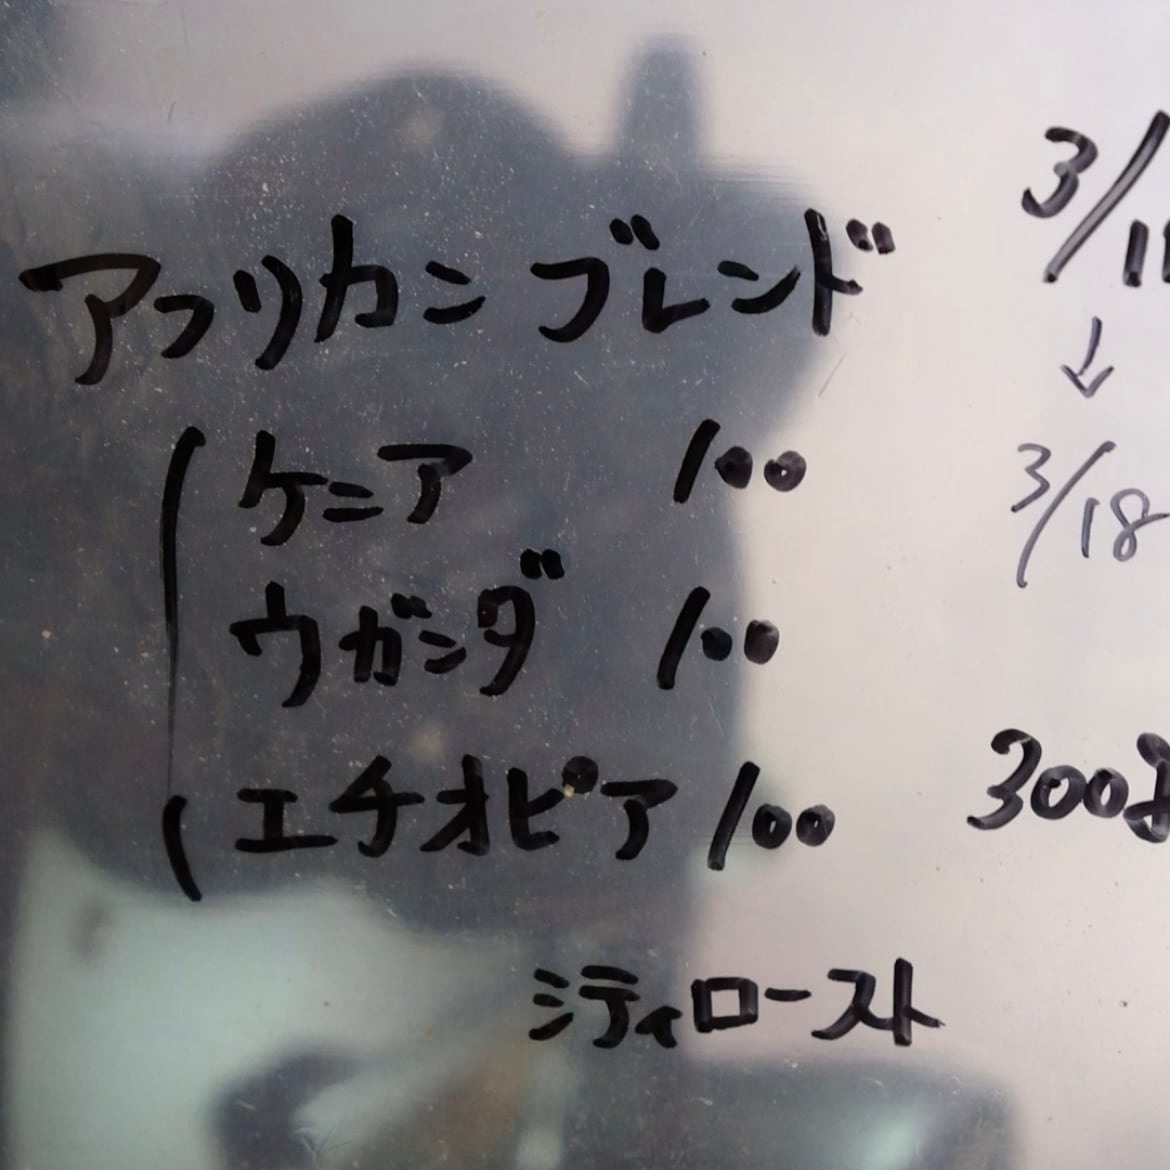 アフリカン ブレンド
ケニア 100
ウガンダ 100
エチオピア 100
シティロースト
3/1
↓
3/18
300